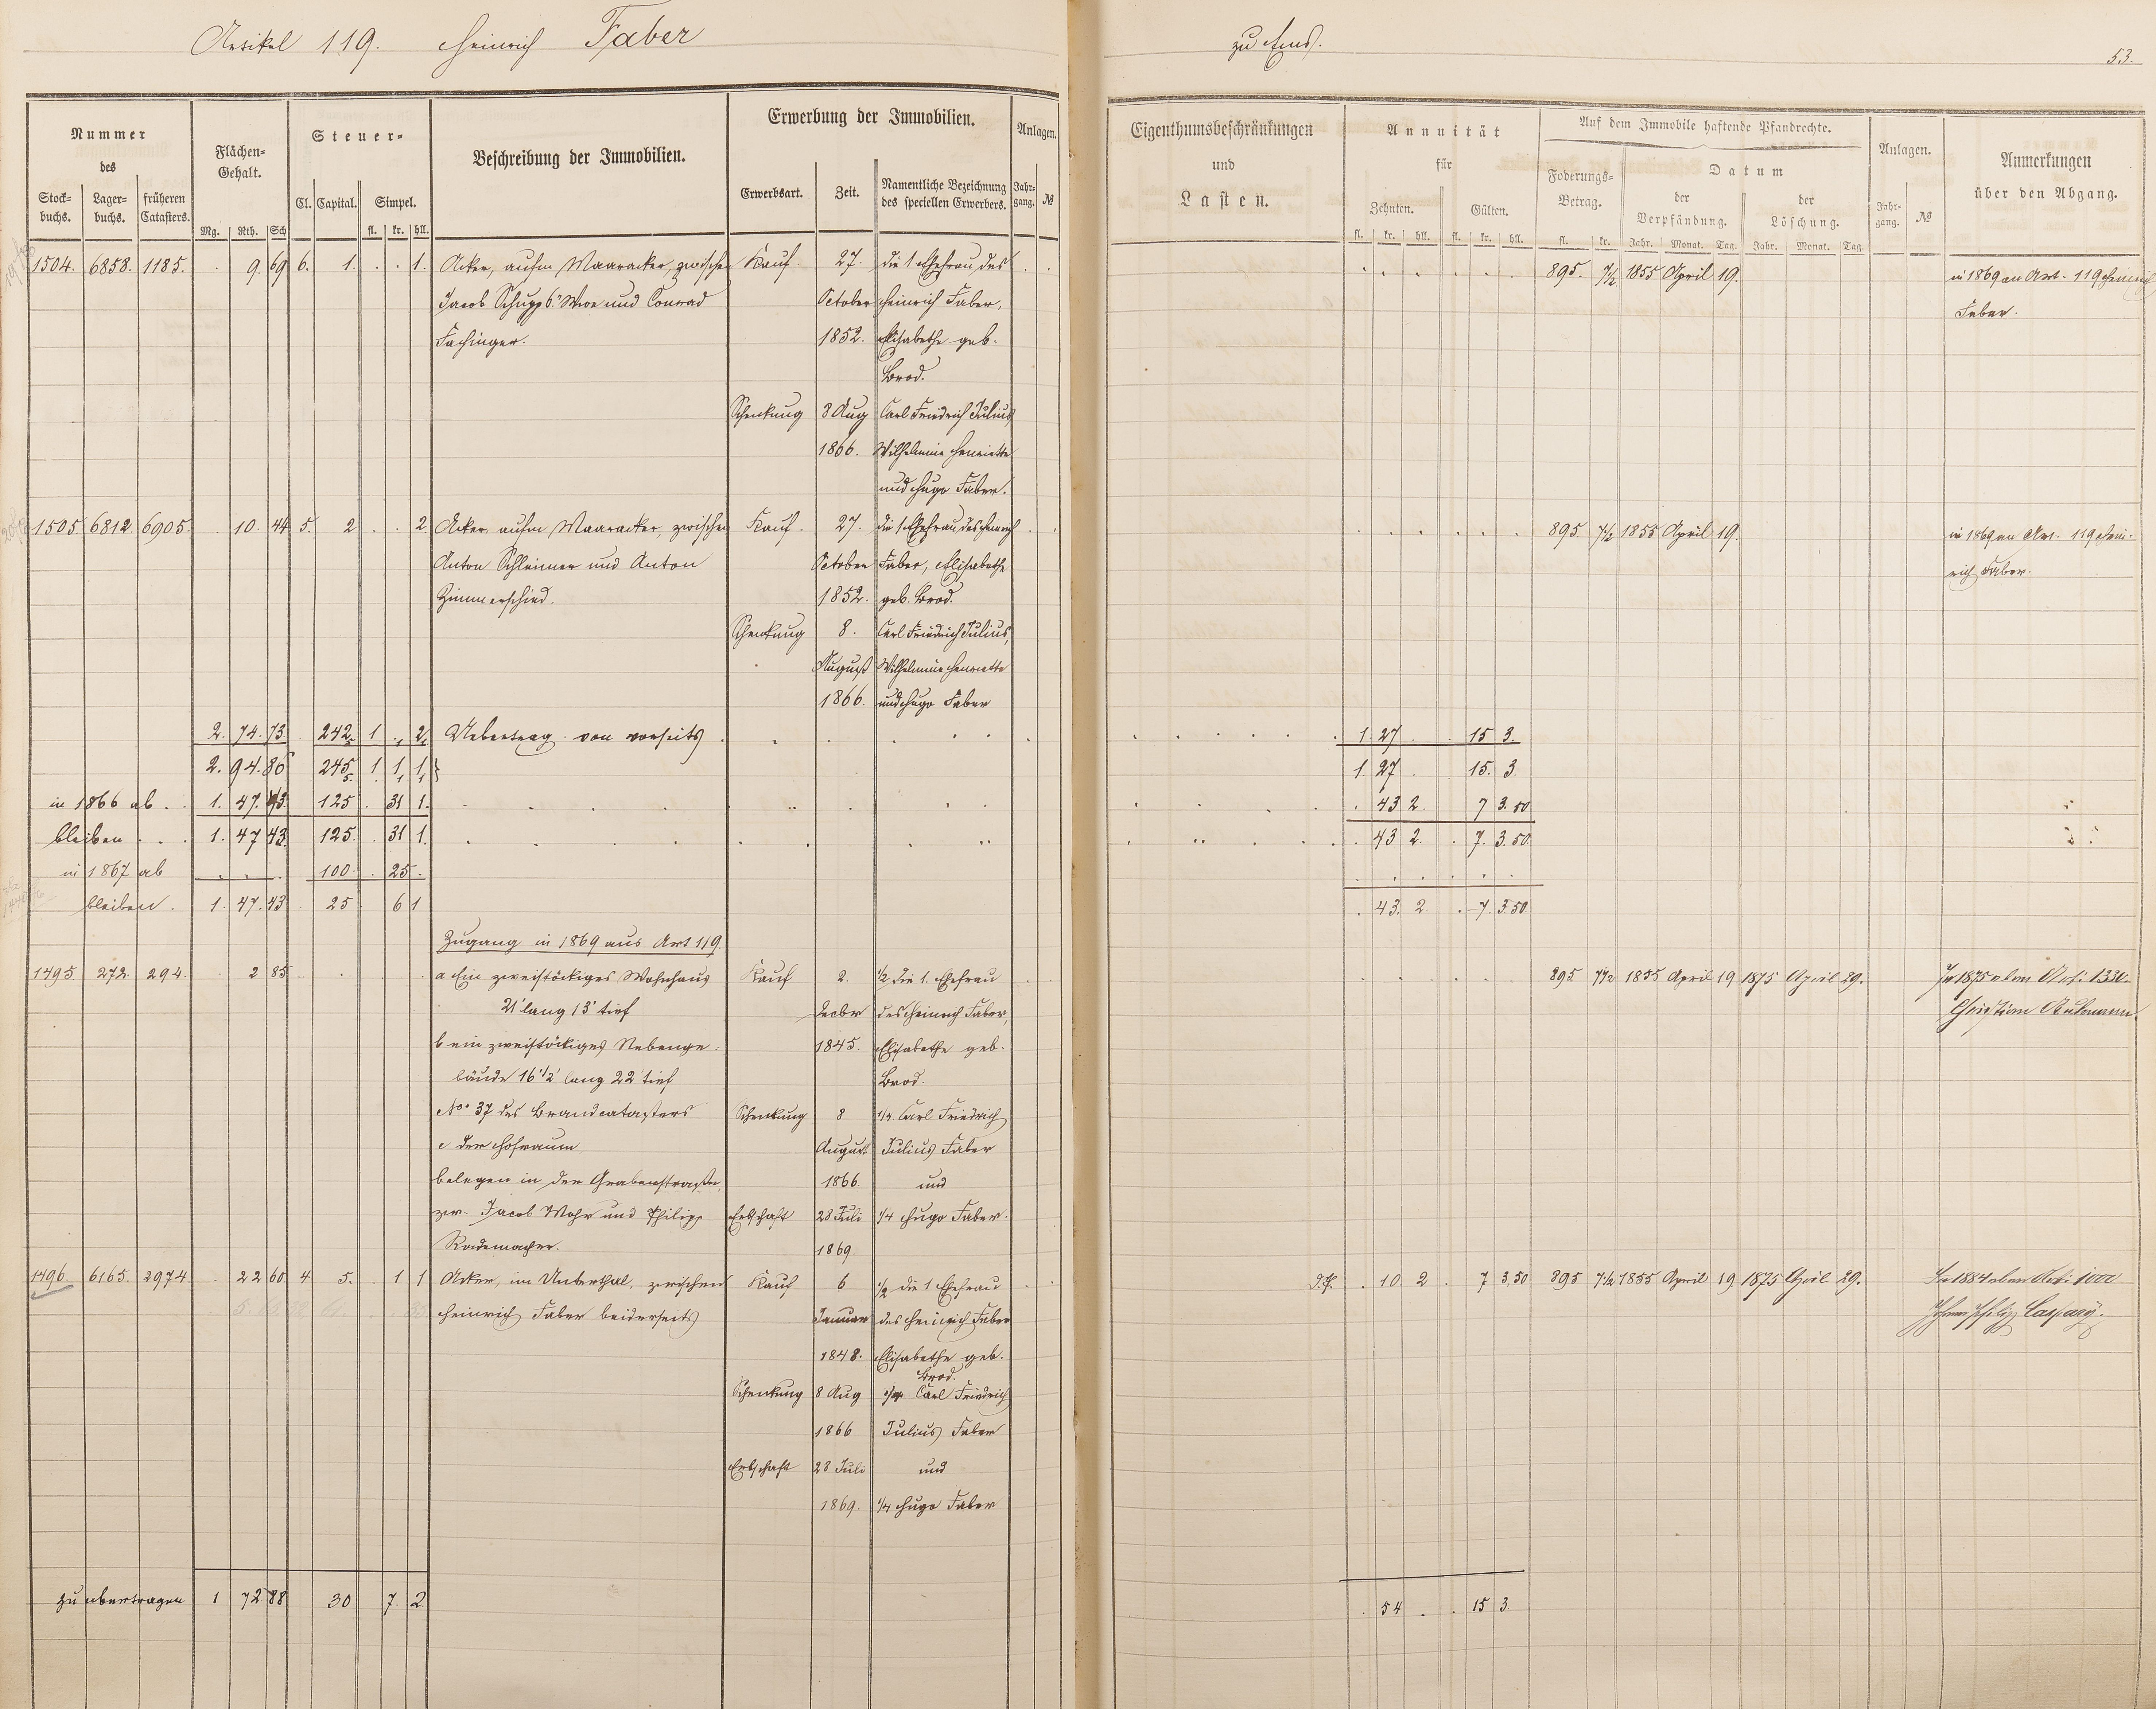 Artikel 119. Heinrich Faber
zu Ems.
53.
Nummer des
Stock-buchs. Lager-buchs. früheren Catasters.
Flächen-Gehalt.
Mg. Rth. Sch
Steuer-
Cl. Capital. Simpel.
fl. kr. hll.
Beschreibung der Immobilien.
Erwerbung der Immobilien.
Erwerbsart. Zeit. Namentliche Bezeichnung des speciellen Erwerbers.
Anlagen.
Jahr-gang. №
Eigenthumsbeschränkungen
und
Lasten.
Annuität
für
Zehnten. Gülten.
fl. kr. hll. fl. kr. hll.
Auf dem Immobile haftende Pfandrechte.
Foderungs-Betrag.
fl. kr.
Datum
der Verpfändung. der Löschung.
Jahr. Monat. Tag. Jahr. Monat. Tag.
Anlagen.
Jahr-gang. №
Anmerkungen
über den Abgang.
1504. 6858. 1185. . 9. 69 6. 1. . . 1. Acker, aufm Waaracker, zwischen Kauf. 27. die 1. Ehefrau des 895. 7½ 1855 April 19. in 1869 an Art. 119 Heinrich
Jacob Schupp 6r Wwe und Conrad October Heinrich Faber, Faber.
Fachinger. 1852. Elisabethe geb.
Brod.
Schenkung 8 Aug Carl Friedrich Julius
1866. Wilhelmine Henriette
und Hugo Faber.
1505. 6812. 6905. . 10. 44 5. 2 . . 2. Acker, aufm Waaracker, zwischen Kauf. 27. die 1. Ehefrau des Heinrich 895. 7½ 1855 April 19. in 1869 an Art. 119 Hein-
Anton Schleimer und Anton October Faber, Elisabethe rich Faber.
Zimmerschied. 1852. geb. Brod.
Schenkung 8. Carl Friedrich Julius,
August Wilhelmine Henriette
1866. und Hugo Faber
2. 74. 73. 242 1 . 2 Uebertrag von vorseits 1. 27 . . 15 3.
2. 94. 86 245 1 1 1 1. 27 . . 15. 3.
in 1866 ab . . 1. 47. 43. 125 . 31 1. . 43 2. . 7 3.50
bleiben . . . 1. 47 43. 125. . 31 1. . 43 2. . 7. 3.50.
in 1867 ab . . . 100. . 25 .
bleiben. 1. 47. 43. 25 6 1 . 43. 2. . 7. 3.50.
Zugang in 1869 aus Art 119.
1495. 272. 294. . 2 85. a Ein zweistöckiges Wohnhaus Kauf 2. ½ die 1. Ehefrau 895 7½ 1855 April 19 1875 April 29. In 1875 ab an Art. 1330
21' lang 13' tief Decbr des Heinrich Faber, Christian
b ein zweistöckiges Nebenge- 1845. Elisabethe geb.
bäude 16½' lang 22' tief Brod.
No. 37 des Brandcatasters Schenkung 8 ¼ Carl Friedrich
c der Hofraum August Julius Faber
belegen in der Grabenstraße, 1866. und
zw. Jacob Mohr und Philipp Erbschaft 28 Juli ¼ Hugo Faber.
Rademacher. 1869.
1496. 6165. 2974 . 22 60 4 5. . 1 1 Acker, im Unterthal, zwischen Kauf 6 ½ die 1 Ehefrau . 10. 2. . 7 3.50 895 7½ 1855 April 19 1875 April 29. In 1884 ab an Art. 1000
Heinrich Faber beiderseits Januar des Heinrich Faber Philipp Caspary.
1848. Elisabethe geb.
Brod.
Schenkung 8 Aug ¼ Carl Friedrich
1866 Julius Faber
Erbschaft 28 Juli und
1869. ¼ Hugo Faber
zu übertragen 1 72 88 30 7. 2. . 54 . . 15 3.